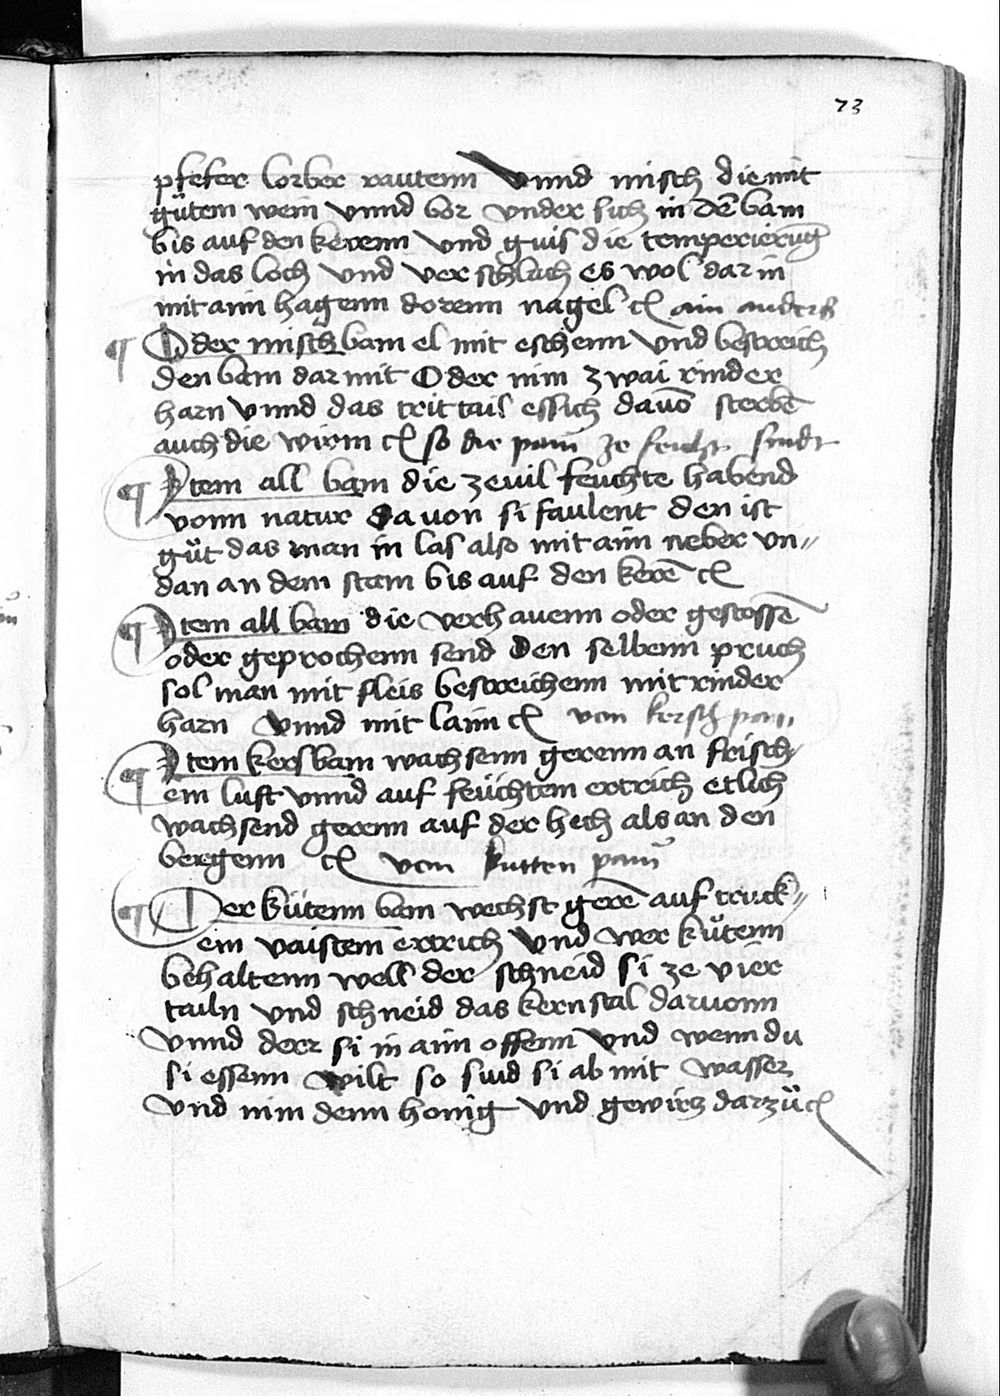 73
pfefer lorber rautenn vnnd misch die mit
gůtem wein vnnd bor vnder sich in dē bam
bis auf den kerenn vnd guis die temperierūg
in das loch vnd ver schlach es wol dar in
mit ainn hagenn dorenn nagel ꝛc ain anders
¶ Oder misch bam el mit eschenn vnd bestreich
den bam dar mit Oder nim zwai rinder
harn vnnd das trit tail essich dauō sterbē
auch die wirm ꝛc so die pam ze feucht sindt
¶ Item all bam die ze uil feuchte habend
vonn natur da uon si faulent den ist
gůt das man in las also mit ainn neber vn〃
dan an dem stam bis auf den kerē ꝛc
¶ Item all bam die verhauenn oder gestossē
oder geprochenn send den selbenn pruch
sol man mit fleis bestreichenn mit rinder
harn vnnd mit laim ꝛc von kersch pam
¶ Item kersbam wachsenn gerenn an frisch〃
em luft vnnd auf feüchtem ertrich etlich
wachsend gerenn auf der hech als an den
bergenn ꝛc vom kutten pam
¶ Der kütenn bam wechst gerē auf truck〃
em vaistem ertrich vnd wer kůtenn
behaltenn well der schneid si ze vier
tailn vnd schneid das kernstal daruonn
vnnd derr si in ainn offenn vnd wenn du
si essenn wilt so suid si ab mit wasser
vnd nim denn honig vnd gewirtz darzů ꝛc